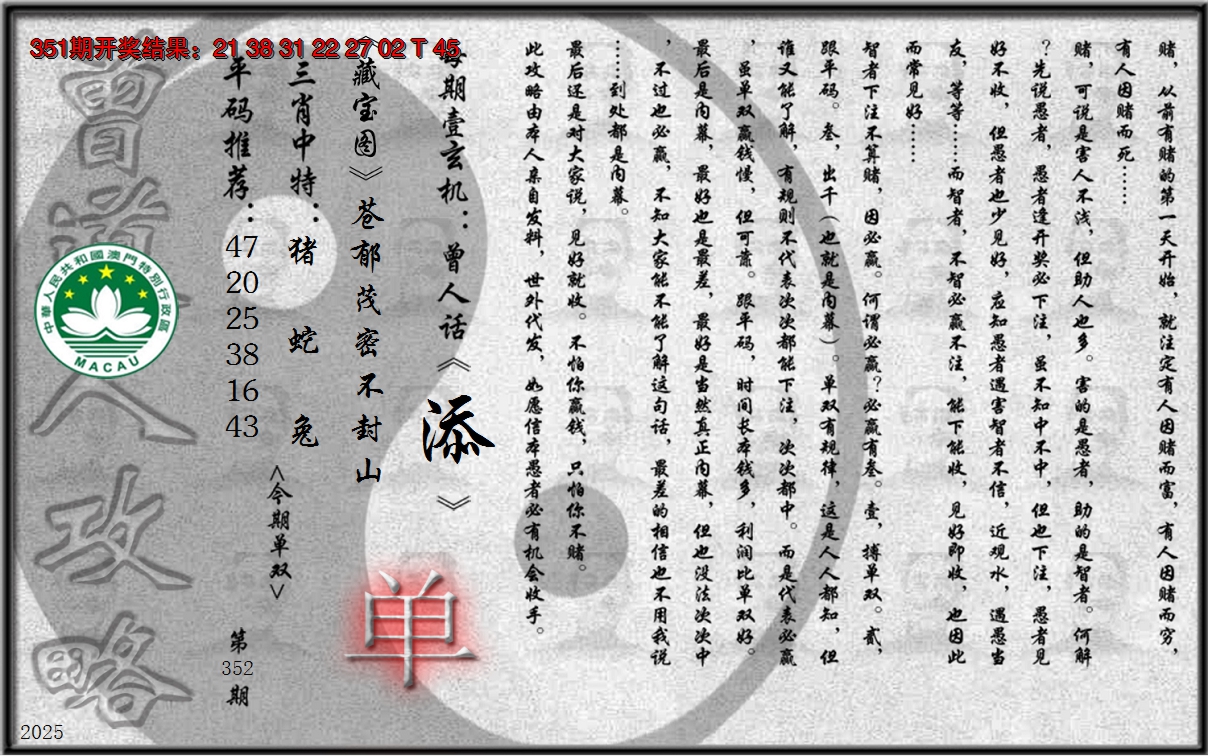 351期开奖结果：21 38 31 22 27 02 T 45
赌，从前有赌的第一天开始，就注定有人因赌而富，有人因赌而穷，
有人因赌而死……
赌，可说是害人不浅，但助人也多。害的是愚者，助的是智者。何解
？先说愚者，愚者逢开奖必下注，虽不知中不中，但也下注，愚者见
好不收，但愚者也少见好，应知愚者遇害智者不信，近观水，遇愚当
友，等等……而智者，不智必赢不注，能下能收，见好即收，也因此
而常见好……
智者下注不算赌，因必赢。何谓必赢？必赢有叁。壹，搏单双。贰，
跟平码。叁，出千（也就是内幕）。单双有规律，这是人人都知，但
谁又能了解，有规则不代表次次都能下注，次次都中。而是代表必赢
，虽单双赢钱慢，但可靠。跟平码，时间长本钱多，利润比单双好。
最后是内幕，最好也是最差，最好是当然真正内幕，但也没法次次中
，不过也必赢，不知大家能不能了解这句话，最差的相信也不用我说
……到处都是内幕。
最后还是对大家说，见好就收。不怕你赢钱，只怕你不赌。
此攻略由本人亲自发料，世外代发，如愿信本愚者必有机会收手。
每期壹玄机：曾人话《添》
《藏宝图》苍郁茂密不封山
三肖中特：猪 蛇 兔
平码推荐：47 20 25 38 16 43
<今期单双>
单
第352期
曾道人攻略
中華人民共和國澳門特別行政區
MACAU
2025